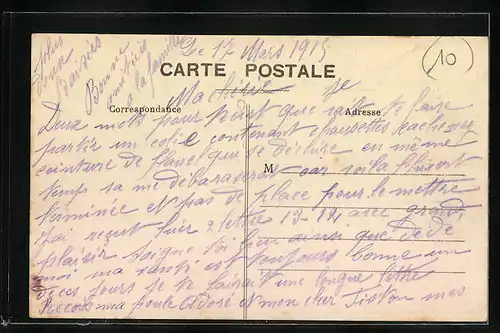 Le 12 Mars 1915
CARTE POSTALE
Ma chérie je
Correspondance
Adresse
Deux mots pour que je te faire
partir un colis contenant chaussettes cache nez
ceinture de flanel qui se déchire en même
temps sa me débarasera car voila l'hivert
M
terminée et pas de place pour le mettre
j'ai reçut hier 2 lettre 13-14 avec grand
plaisir soigne toi bien ainsi que
moi ma santé est toujours bonne un
de ces jours je te ferait une longue lettre
Recois ma poule adoré et mon cher Tiston mes
plus
doux
baisers
Bonne
amitiées
a la famille
10